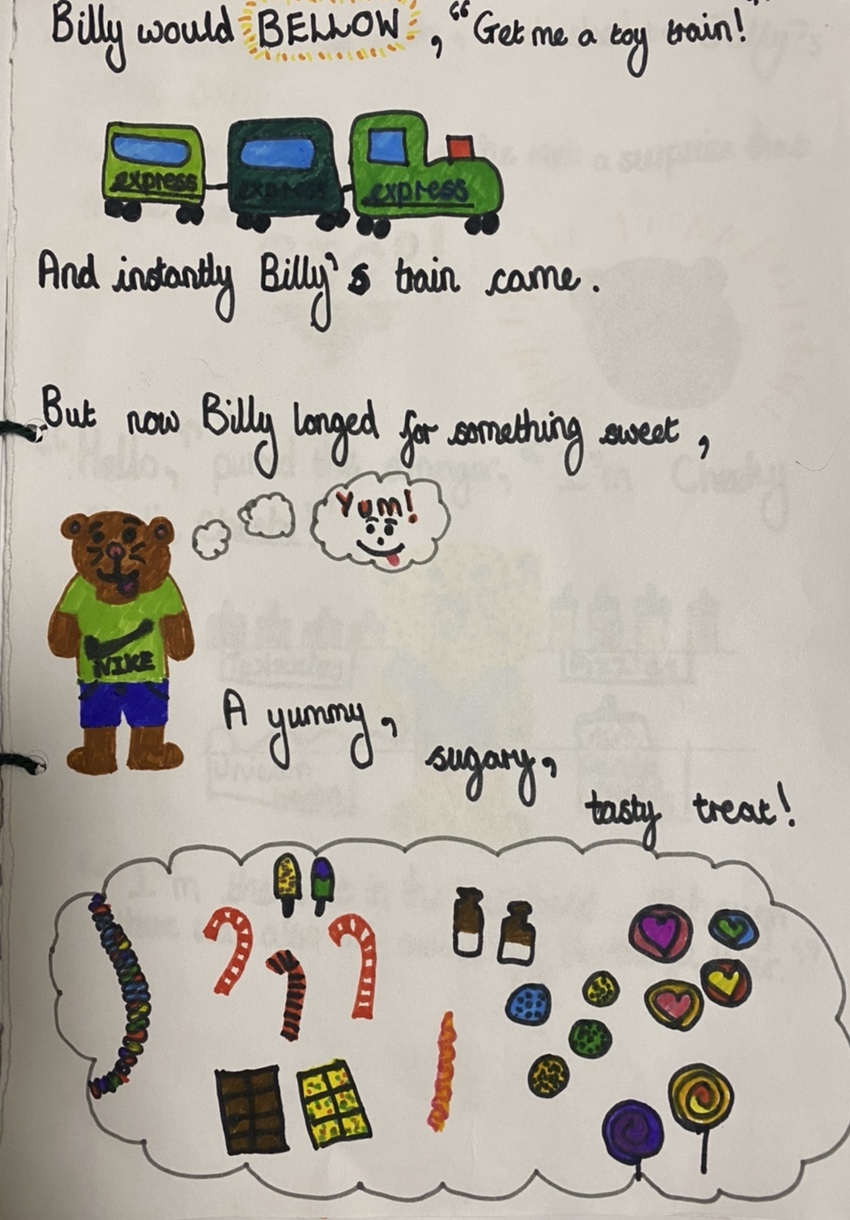 Billy would BELLOW, "Get me a toy train!"
express express express
And instantly Billy's train came.
But now Billy longed for something sweet,
Yum!
NIKE
A yummy,
sugary,
tasty treat!